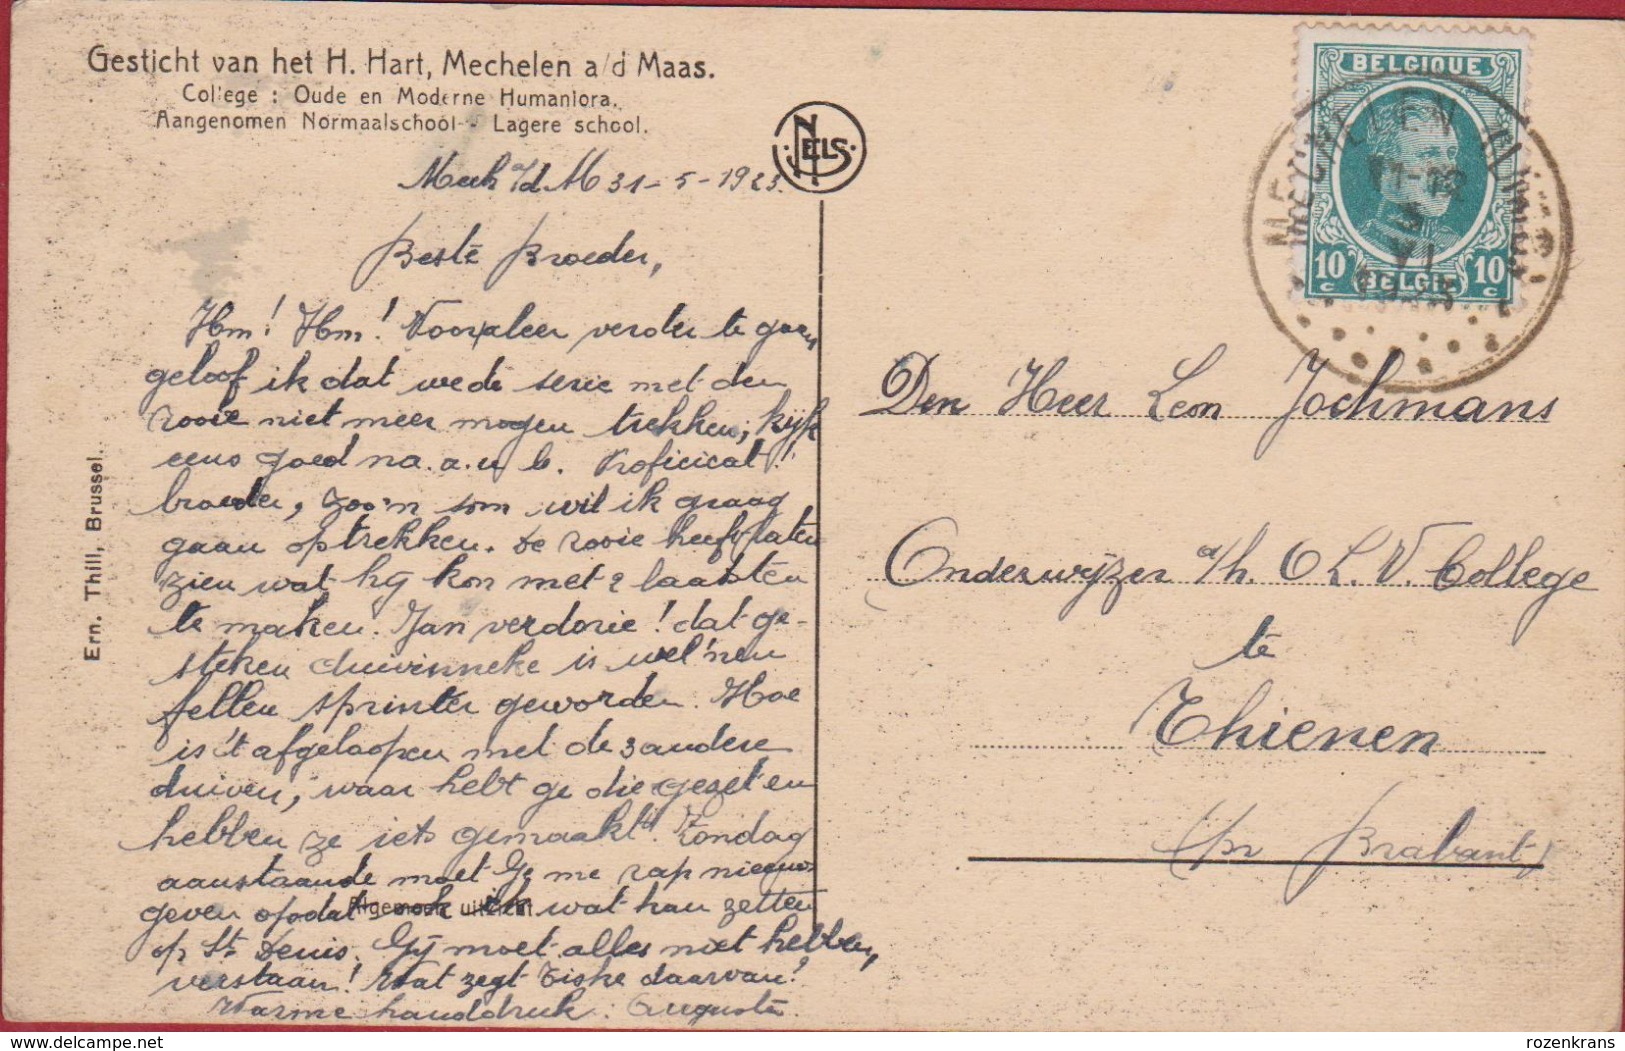 Gesticht van het H. Hart, Mechelen a/d Maas.
College : Oude en Moderne Humaniora.
Aangenomen Normaalschool - Lagere school.
NELS
Mech a/d M 31-5-1923.
Beste Broeder,
Hm! Hm! Vooraleer verder te gaan,
geloof ik dat we de serie met den
rooie niet meer mogen trekken, kijk
eens goed na. a. u. b. Proficicat!
broeder, zoo'n som wil ik graag
gaan optrekken. De rooie heeft laten
zien wat hij kon met 2 laatsten
te maken. Jan verdorie! dat ge-
steken duivinneke is wel 'nen
fellen sprinter geworden. Hoe
is 't afgeloopen met de 3 andere
duiven, waar hebt ge die gezet en
hebben ze iets gemaakt? Zondag
aanstaande moet Ge me rap nieuws
geven opdat ook ik wat kan zetten
op St Denis. Gij moet alles niet hebben,
verstaan! Wat zegt Tiske daarvan?
Warme handdruk : Auguste.
Ern. Thill, Brussel.
BELGIQUE
10 c BELGIË 10 c
MECHELEN
11-12
VI
1923
Den Heer Leon Jochmans
Onderwijzer a/h. O L. V. College
te
Thienen
(pr Brabant)
rozenkrans
delcampe.net